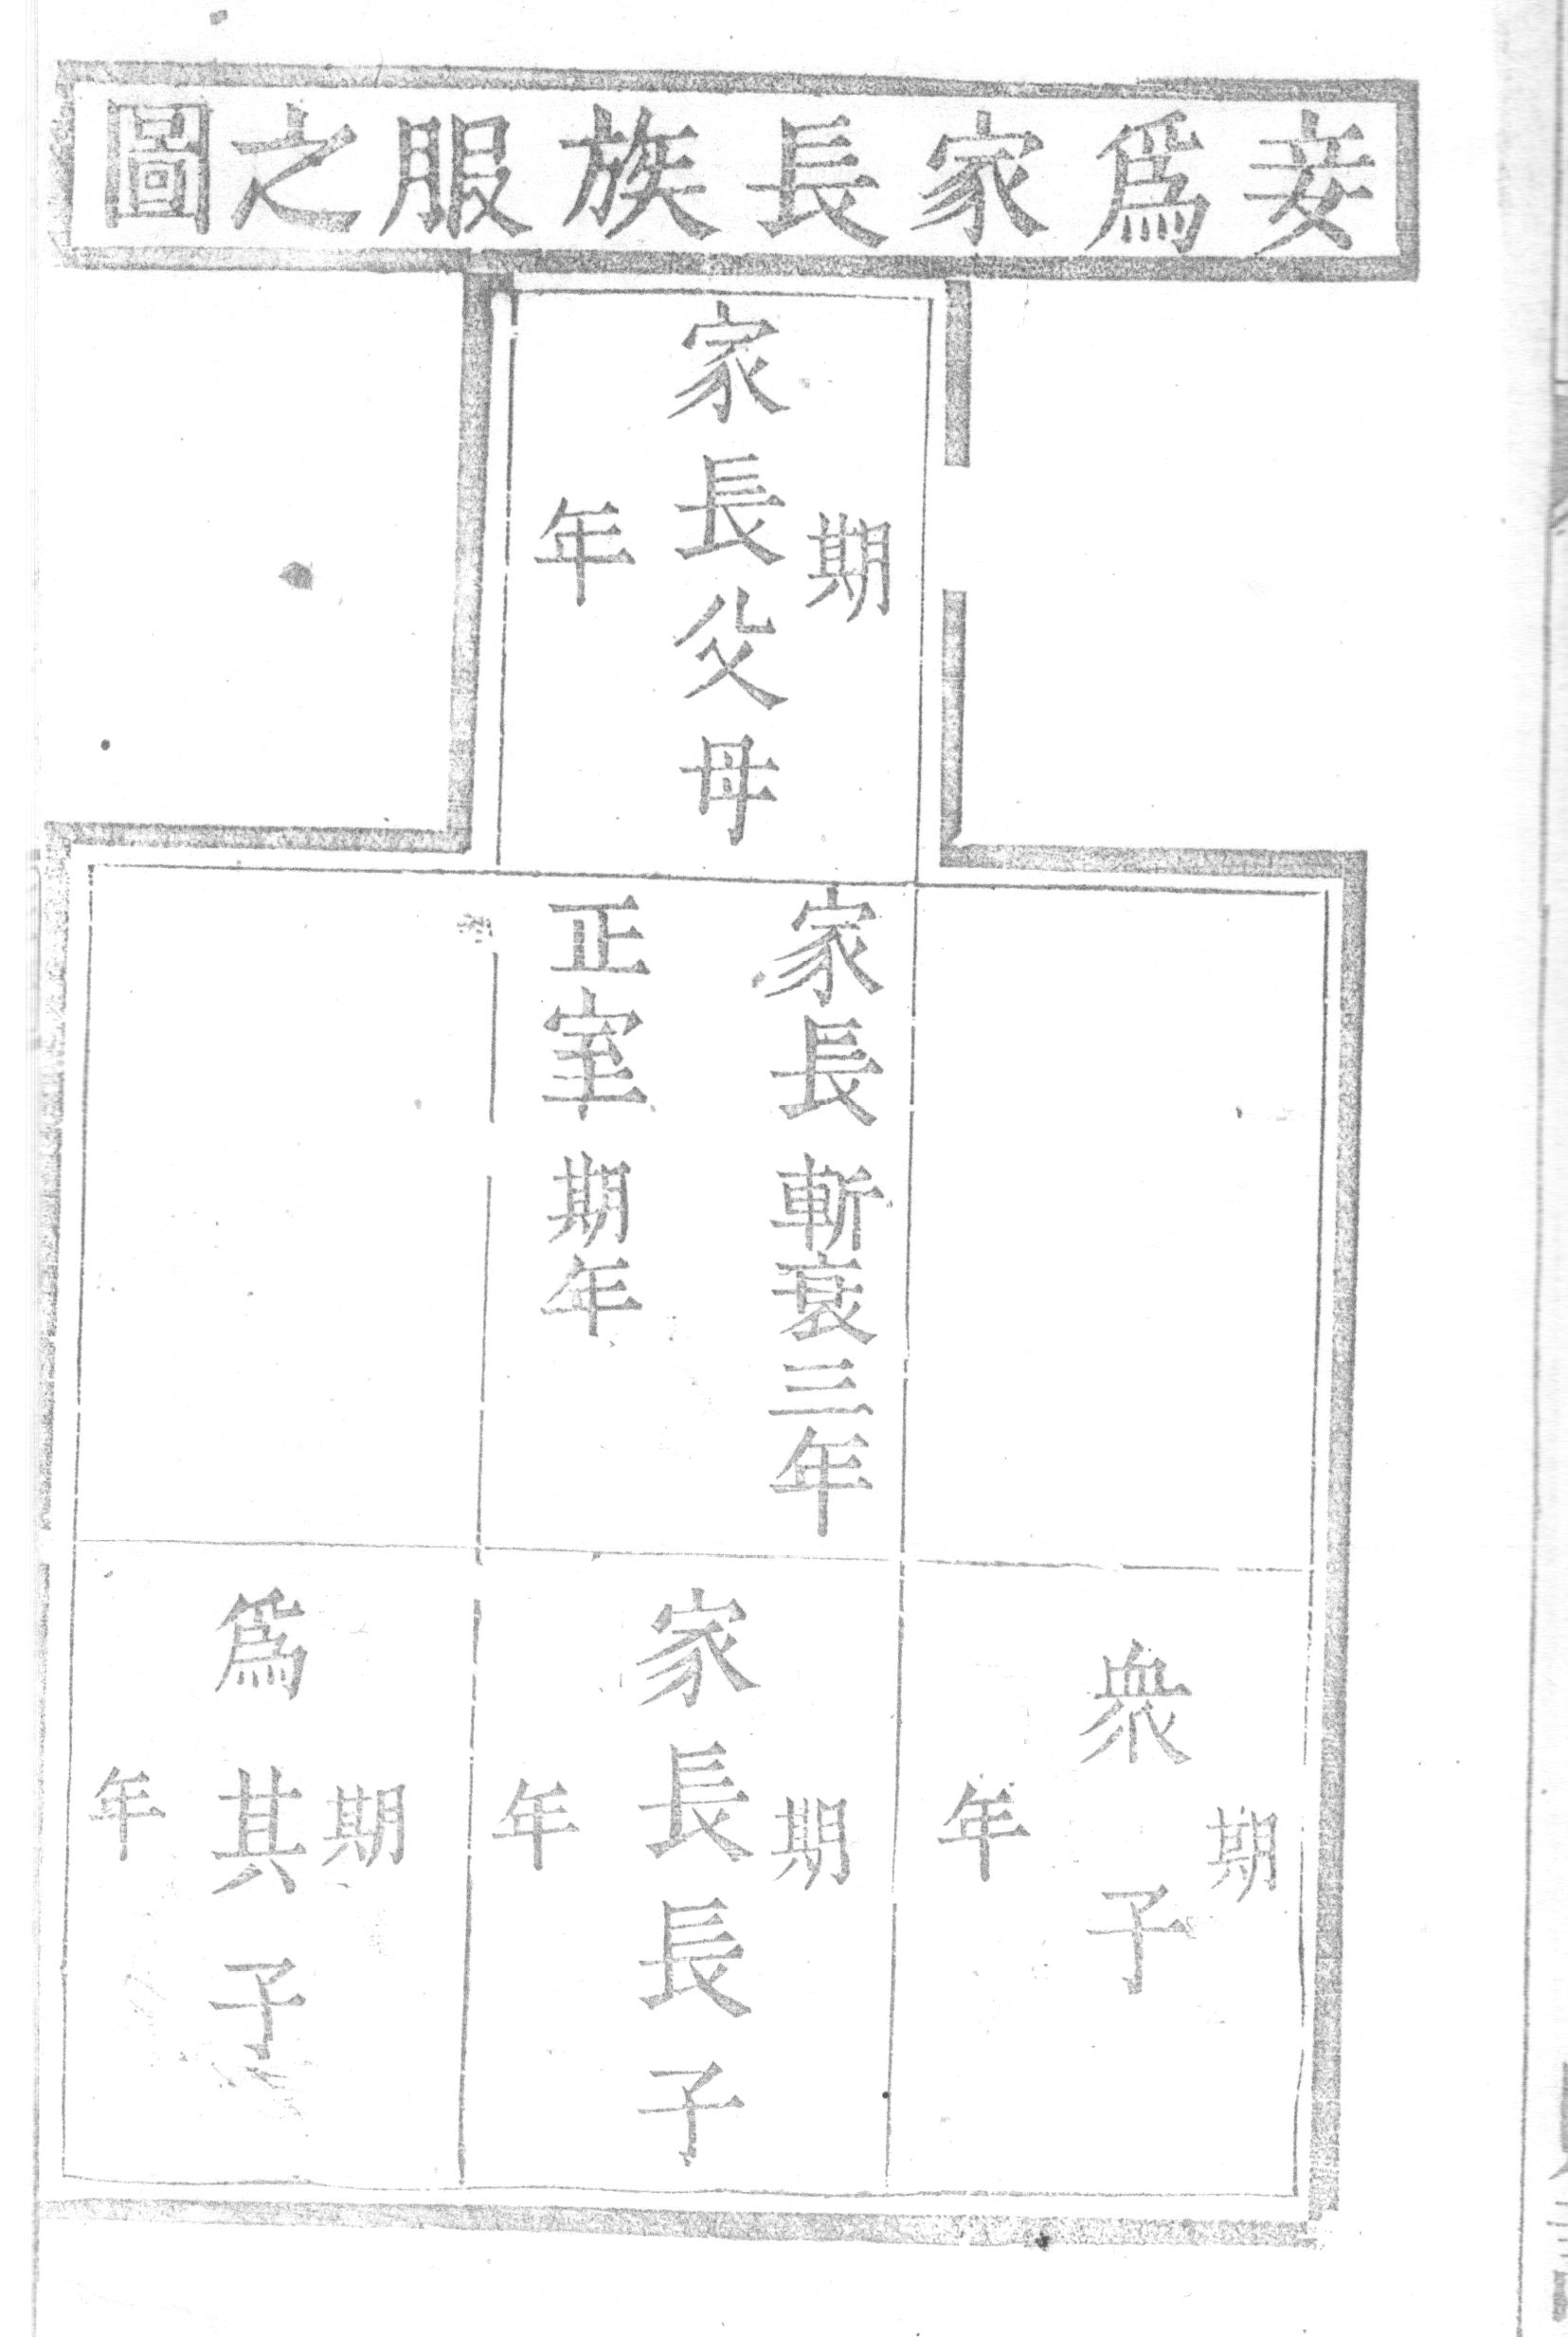 妾爲家長族服之圖
家長父母
期年
家長 斬衰三年
正室 期年
衆子
期年
家長長子
期年
爲其子
期年